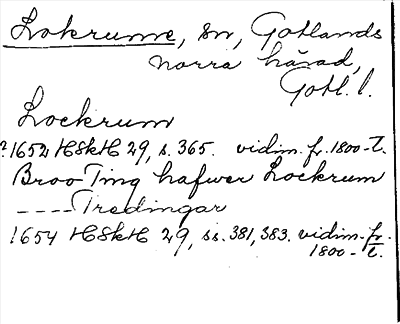 Lokrume, sn, Gotlands
norra härad,
Gotl. l.
Lockrum
?1652 HSkH 29, s. 365. vidim. fr. 1800-t.
Broo Ting hafwer Lockrum
---- Tredingar
1654 HSkH 29, ss. 381, 383. vidim. fr.
1800-t.